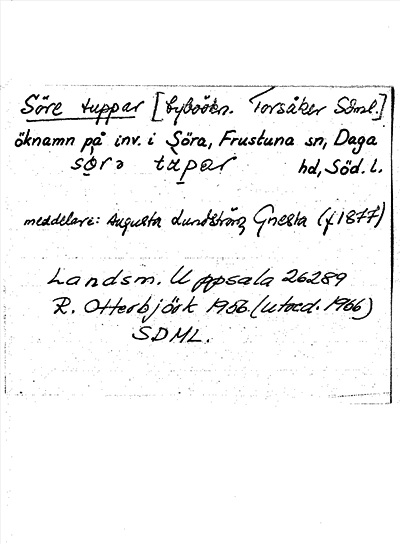 Söre tuppar [byboökn. Torsåker Söml.]
öknamn på inv. i Söra, Frustuna sn, Daga
sörə tùpar hd, Söd. L.
meddelare: Augusta Lundström, Gnesta (f 1877)
Landsm. Uppsala 26289
R. Otterbjörk 1956. (utord. 1966)
SDML.